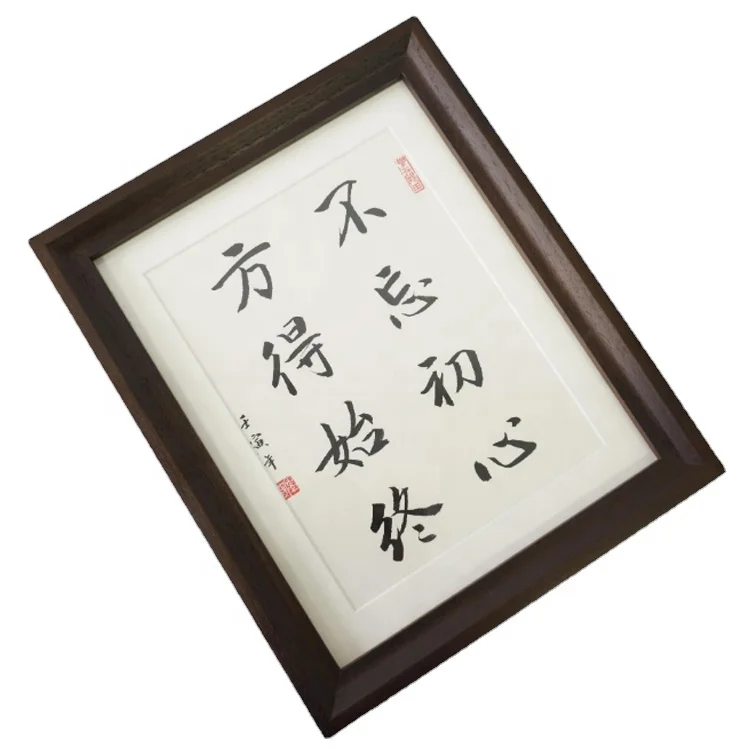 不忘初心
方得始终
壬寅年